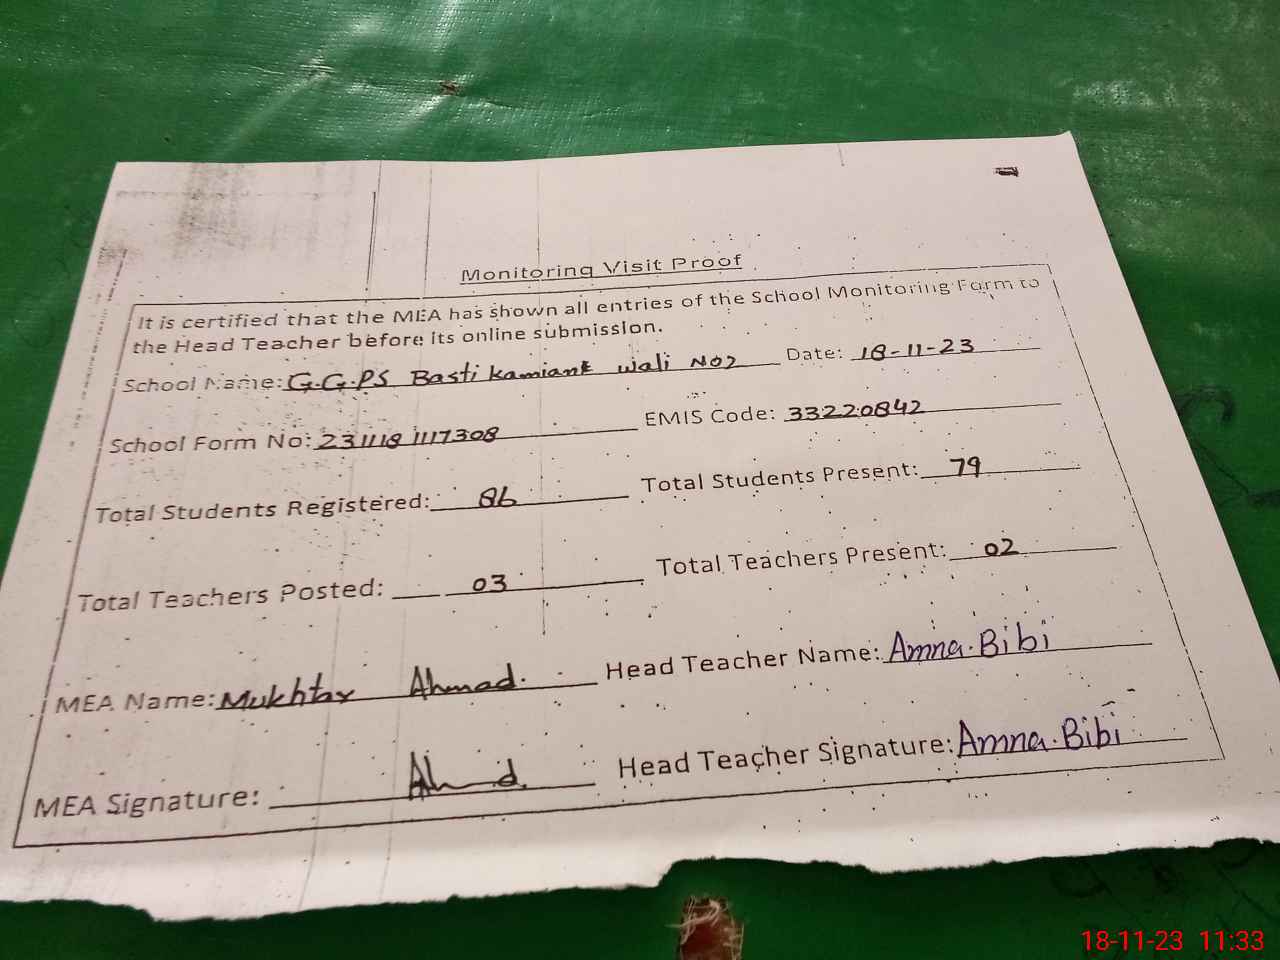 Monitoring Visit Proof
It is certified that the MEA has shown all entries of the School Monitoring Form to
the Head Teacher before its online submission.
School Name: G.G.PS Basti kamiank wali No2 Date: 18-11-23
School Form No: 231118 1117308 EMIS Code: 33220842
Total Students Registered: 86 Total Students Present: 79
Total Teachers Posted: 03 Total Teachers Present: 02
MEA Name: Mukhtar Ahmad. Head Teacher Name: Amna.Bibi
MEA Signature: Head Teacher Signature: Amna.Bibi
18-11-23 11:33